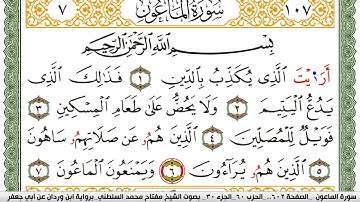 ٧ سُورَةُ المَاعُونِ ١٠٧
بِسْمِ اللَّهِ الرَّحْمَٰنِ الرَّحِيمِ
أَرَٰيْتَ الَّذِي يُكَذِّبُ بِالدِّينِ ١ فَذَٰلِكَ الَّذِي
يَدُعُّ الْيَتِيمَ ٢ وَلَا يَحُضُّ عَلَىٰ طَعَامِ الْمِسْكِينِ ٣
فَوَيْلٌ لِلْمُصَلِّينَ ٤ الَّذِينَ هُمُۥ عَن صَلَاتِهِمُۥ سَاهُونَ
٥ الَّذِينَ هُمُۥ يُرَاءُونَ ٦ وَيَمْنَعُونَ الْمَاعُونَ ٧
سورة الماعون الصفحة ٦٠٢ الحزب ٦٠ الجزء ٣٠ بصوت الشيخ مفتاح محمد السلطني برواية ابن وردان عن أبي جعفر